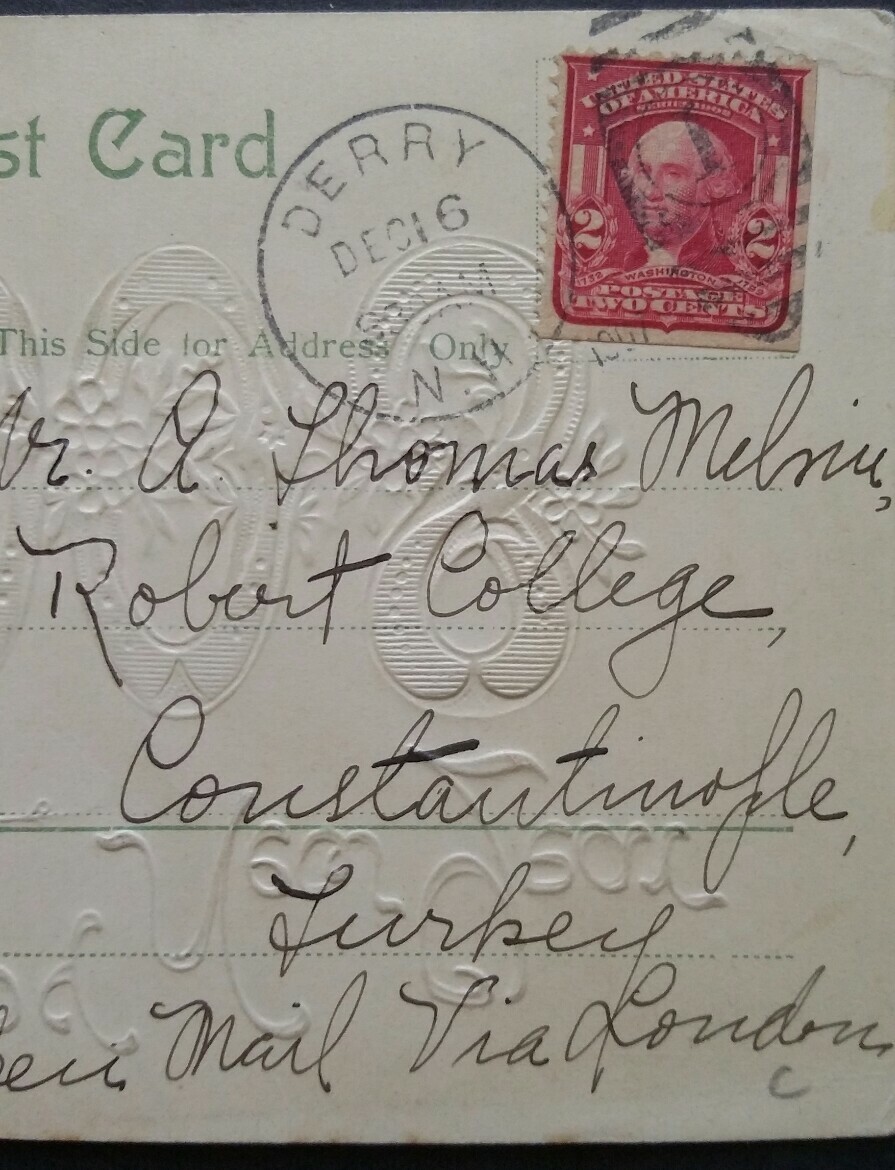 st Card
DERRY
DEC 16
AM
N.H.
190
UNITED STATES
OF AMERICA
SERIES 1902
2 2
1732 WASHINGTON 1799
POSTAGE
TWO CENTS
This Side for Address Only
Mr. A Thomas
Robert College,
Constantinople,
Turkey
Mail Via London